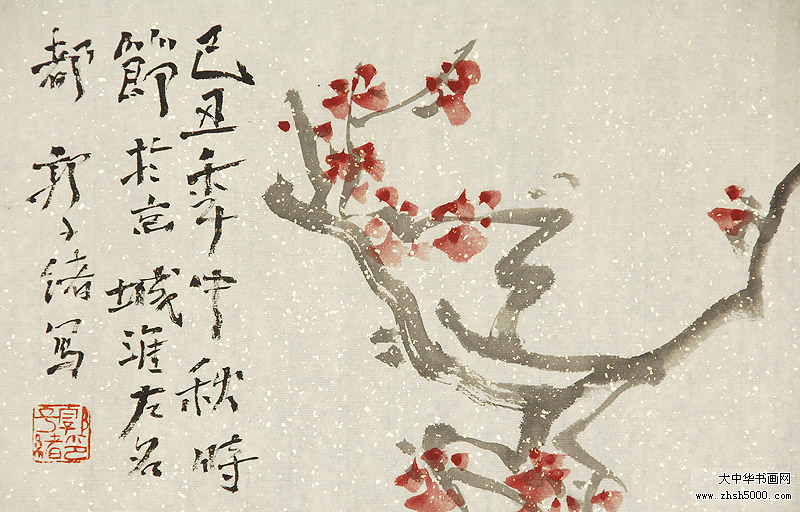 己丑年中秋時
節於京城淮左名
都郭子緒寫
郭子緒印
大中华书画网
www.zhsh5000.com